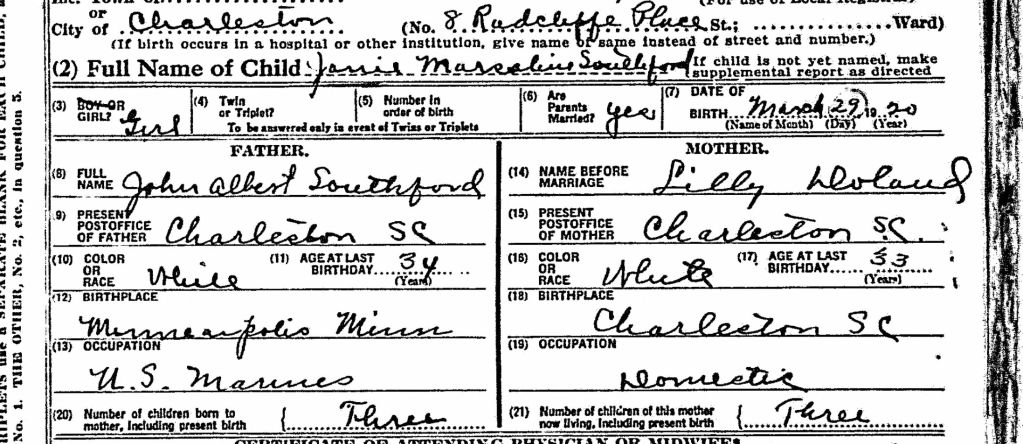 or
City of Charleston (No. 8 Radcliffe Place St.; Ward)
(If birth occurs in a hospital or other institution, give name of same instead of street and number.)
(2) Full Name of Child Southford If child is not yet named, make
supplemental report as directed
(3) BOY OR GIRL? Girl (4) Twin or Triplet? (5) Number in order of birth (6) Are Parents Married? Yes (7) DATE OF BIRTH March 29 1920
To be answered only in event of Twins or Triplets (Name of Month) (Day) (Year)
FATHER. MOTHER.
(8) FULL NAME John Albert Southford (14) NAME BEFORE MARRIAGE Lilly Doland
(9) PRESENT POSTOFFICE OF FATHER Charleston SC (15) PRESENT POSTOFFICE OF MOTHER Charleston S.C.
(10) COLOR OR RACE White (11) AGE AT LAST BIRTHDAY 34 (Years) (16) COLOR OR RACE White (17) AGE AT LAST BIRTHDAY 33 (Years)
(12) BIRTHPLACE (18) BIRTHPLACE
Minneapolis Minn Charleston SC
(13) OCCUPATION (19) OCCUPATION
U.S. Marines Domestic
(20) Number of children born to mother, including present birth { Three (21) Number of children of this mother now living, including present birth { Three
CERTIFICATE OF ATTENDING PHYSICIAN OR MIDWIFE*
No. 1. THE OTHER, No. 2, etc., in question 5.